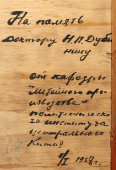 На память
доктору Н.П. Дуби
нину
от кафедры
"Литейного про
изводства"
политехническо
го института
Центрального
Китая
1957г.